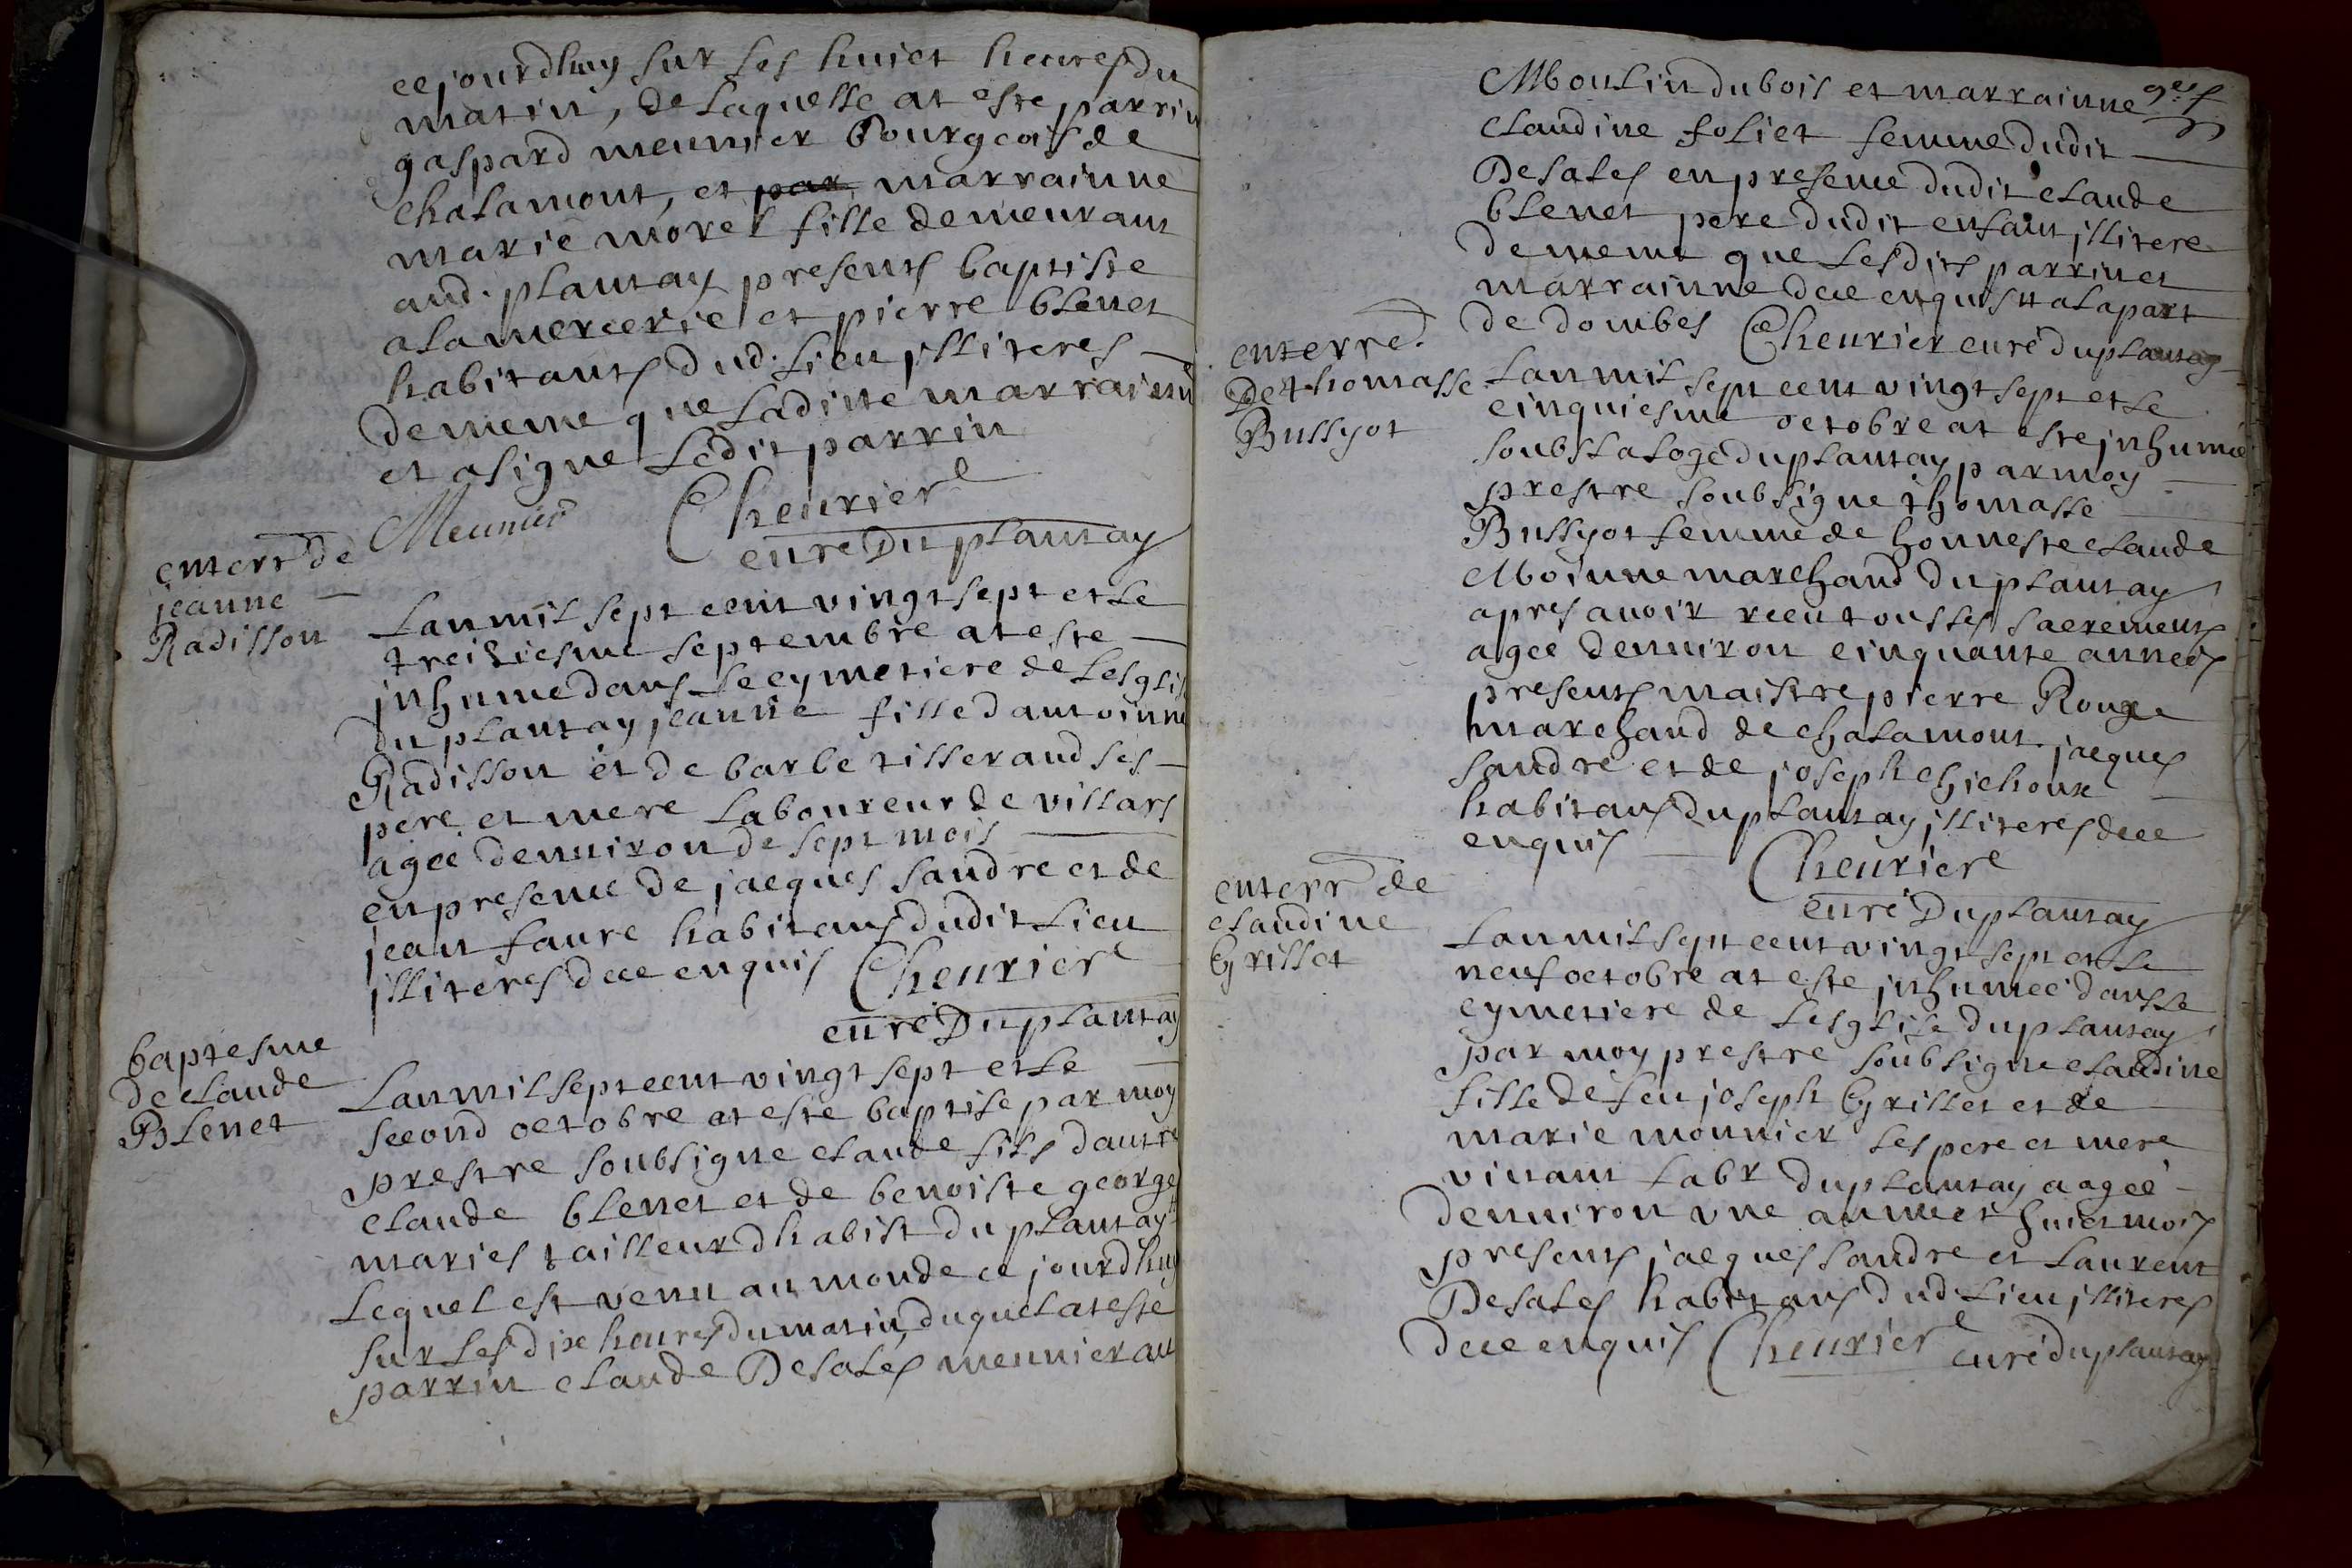 cejourdhuy sur les huict heures du
matin, de laquelle at este parrin
gaspard meunier Bourgeois de
chalamont, et par marrainne
marie morel fille demeurant
aud. plantay presents baptiste
alamercerie et pierre blenet
habitants dud. lieu illiteres
dememe que laditte marrainne
et asigne ledit parrin
Meunier Cheurier
curé Du plantay
enterr de
jeanne
Radisson
Lanmil sept cent vingt sept et le
treiziesme septembre at este
jnhume dans le cymetiere de lesglise
Du plantay jeanne fille dantoinne
Radisson et de barbe tisserand ses
pere et mere laboureur de villars
agee denuiron de sept mois
en presence de jacques sandre et de
jean faure habitans dudit lieu
jlliteres dece enquis Cheurier
curé Du plantay
baptesme
de claude
Blenet
Lanmil sept cent vingt sept et le
second octobre at este baptise par moy
prestre soubsigne claude fils dautre
claude blenet et de benoiste george
maries tailleur dhabist du plantay
Lequel est venu au monde ce jourdhuy
sur les dix heures du matin, duquel at este
parrin claude Desales meunier au
Moulin dubois et marrainne
claudine foliet femme dudit
Desales en presence dudit claude
blenet pere dudit enfant jllitere
dememe que lesdits parrin et
marrainne dece enquis alapart
de dombes Cheurier curé duplantay
enterre.
De thomasse
Bussyot
Lanmil sept cent vingt sept et le
cinquiesme octobre at este jnhumée
soubs laloge duplantay par moy
prestre soubsigne thomasse
Bussyot femme de honneste claude
Moinne marchand du plantay
apres auoir receu tous les sacrements
agee denuiron cinquante années
presents maistre pierre Rouge
marchand de chalamont. jacques
sandre et de joseph chichoux
habitans duplantay jlliteres dece
enquis Cheurier
curé Du plantay
enterr de
claudine
Grillet
Lanmil sept cent vingt sept et le
neuf octobre at este jnhumeé dans le
cymetiere de lesglise du plantay
par moy prestre soubsigne claudine
fille de feu joseph Grillet et de
marie monnier ses pere et mere
viuant labr duplantay aageé
denuiron vne annee et huict mois
presents jacques sandre et laurent
Desales habitans dud. lieu jlliteres
dece enquis Cheurier curé duplantay